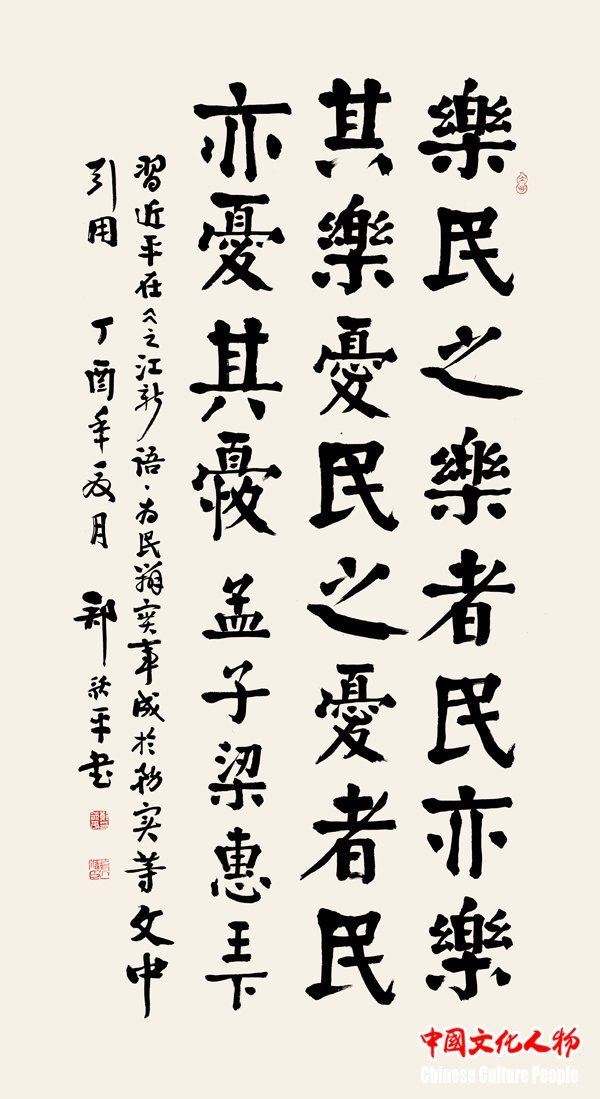 樂民之樂者民亦樂
其樂憂民之憂者民
亦憂其憂 孟子梁惠王下
習近平在《之江新語·为民辦实事成於務实等文中
引用 丁酉年夏月 郑平书
中國文化人物
Chinese Culture People